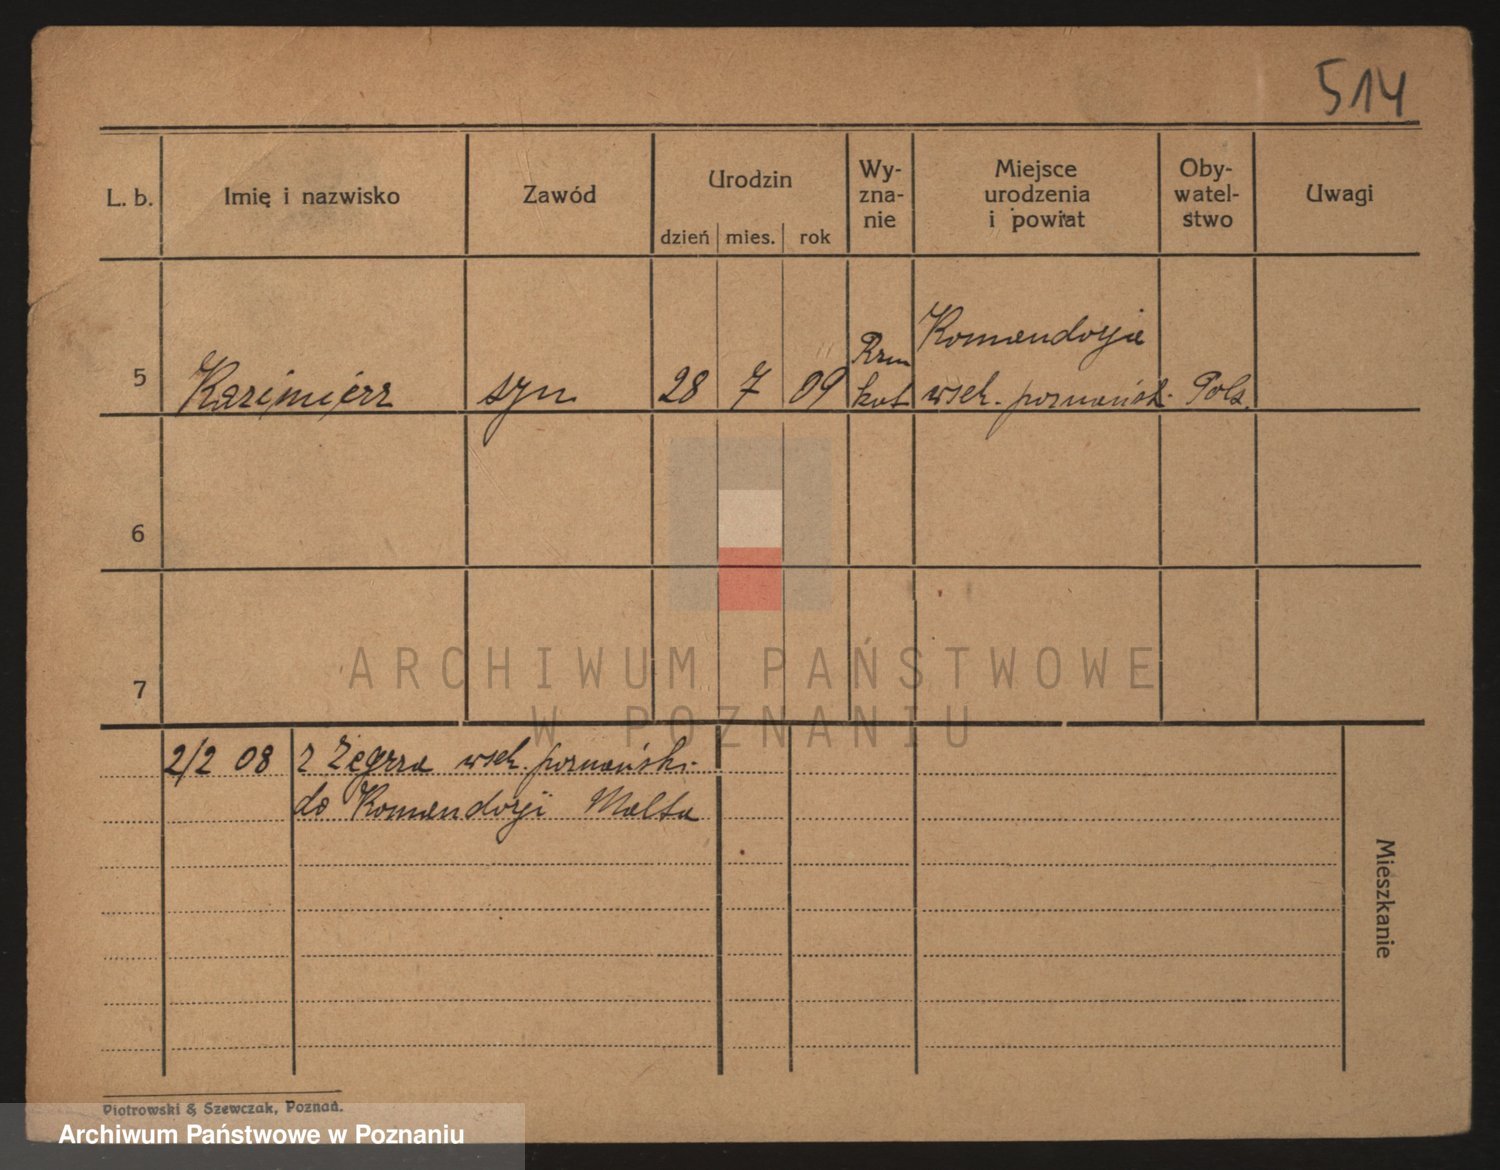 514
L. b.
Imię i nazwisko
Zawód
Urodzin
dzień mies. rok
Wy-
zna-
nie
Miejsce
urodzenia
i powiat
Oby-
watel-
stwo
Uwagi
5 Kazimierz syn 28 7 09
Rzm
kat
Komendorja
wsch. poznańsk.
Pols.
6
7
2/2 08 z Żegrza wsch. poznański.
do Komendorji Malta
Mieszkanie
ARCHIWUM PAŃSTWOWE
W POZNANIU
Piotrowski & Szewczak, Poznań.
Archiwum Państwowe w Poznaniu